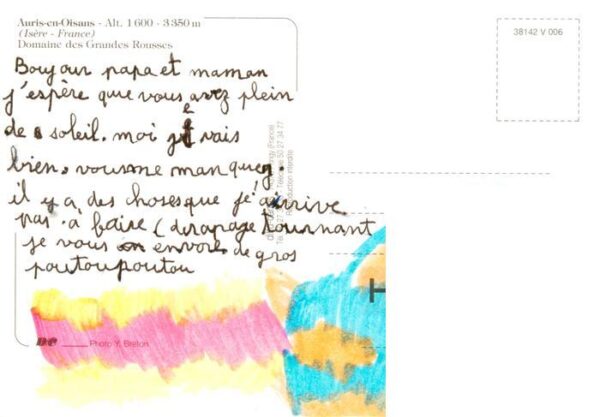 Auris-en-Oisans - Alt. 1 600 - 3 350 m
(Isère - France)
Domaine des Grandes Rousses
38142 V 006
Boujour papa et maman
j'espère que vous avez plein
de soleil. moi je vais
bien. vous me manquez.
il y a des hoses que je n'airrive
pas à faire (dérapage tournant
je vous envoie de gros
poutoupoutou
Reproduction interdite
Photo Y. Breton
H